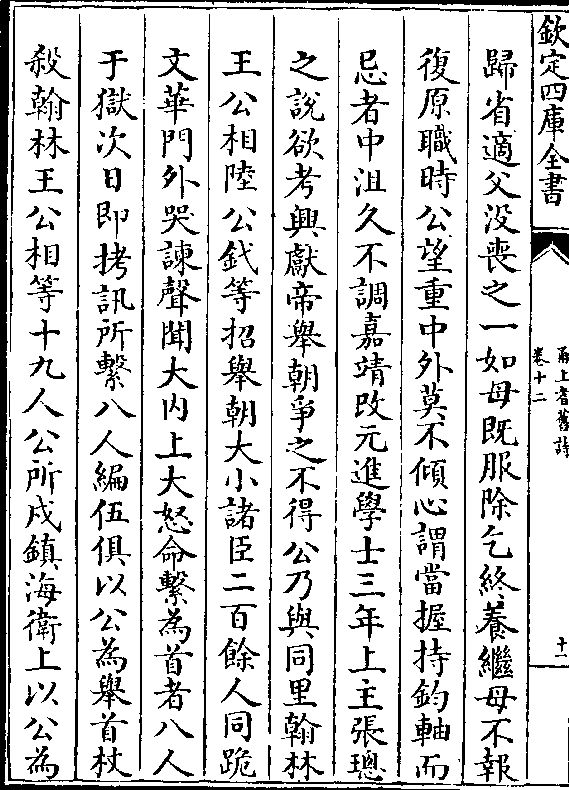 欽定四庫全書
甬上耆舊詩
卷十二
十一
歸省適父没喪之一如母既服除乞終養繼母不報
復原職時公望重中外莫不傾心謂當握持鈞軸而
忌者中沮久不調嘉靖改元進學士三年上主張璁
之說欲考興獻帝舉朝爭之不得公乃與同里翰林
王公相陸公釴等招舉朝大小諸臣二百餘人同跪
文華門外哭諫聲聞大内上大怒命繫為首者八人
于獄次日即拷訊所繫八人編伍俱以公為舉首杖
殺翰林王公相等十九人公所戍鎮海衛上以公為